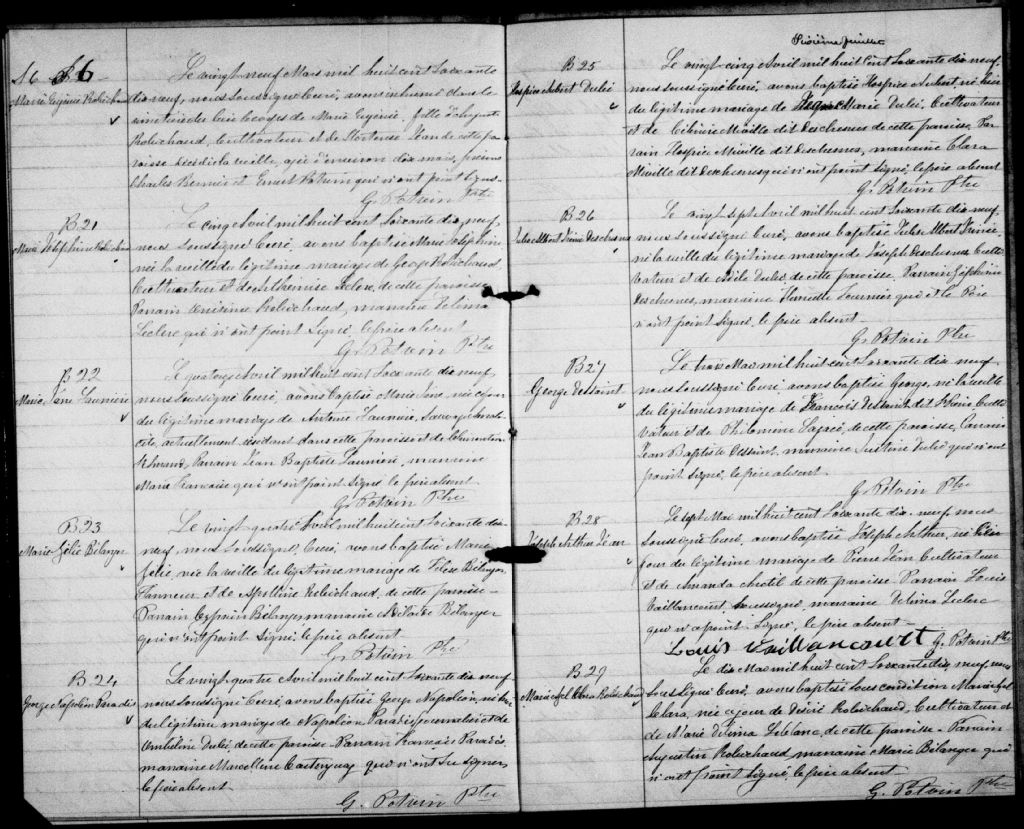 S 6
Marie Eugénie Robichaud
Le vingt neuf Mars mil huit cent soixante
dix neuf, nous soussigné Curé, avons inhumé dans le
cimetière du lieu le corps de Marie Eugénie, fille
Robichaud, Cultivateur et de Hortense Jean de cette pa-
roisse décédée la veille, agée d'environ dix mois, présens
Charles Bernier et Ernest Potvin qui n'ont point signé
G. Potvin Ptre
B 21
Marie Joséphine Robichaud
Le cinq Avril mil huit cent soixante dix neuf
nous soussigné Curé, avons baptisé Marie Joséphine
née la veille du légitime mariage de George Robichaud,
Cultivateur et de Arthémise Leclerc, de cette paroisse
Parrain Robichaud, marraine Délima
Leclerc qui n'ont point signé, le père absent
G. Potvin Ptre
B 22
Marie
Le quatorze Avril mil huit cent soixante dix neuf
nous soussigné Curé, avons baptisé Marie née ce jour
du légitime mariage de Antoine Sauvage
actuellement résidant dans cette paroisse et de Clémentine
Parrain Jean Baptiste marraine
Marie Françoise qui n'ont point signé, le père absent.
G. Potvin Ptre
B 23
Marie Félie Bélanger
Le vingt quatre Avril mil huit cent soixante dix
neuf, nous soussigné, Curé, avons baptisé Marie
Félie, née la veille du légitime mariage de Bélanger
Tanneur et de Apolline Robichaud, de cette paroisse
Parrain Cyprain Bélanger, marraine Bélanger
qui n'ont point signé, le père absent.
G. Potvin Ptre
B 24
George Napoléon Paradis
Le vingt quatre Avril mil huit cent soixante dix neuf
nous soussigné Curé, avons baptisé George Napoléon, né
du légitime mariage de Napoléon Paradis journalier et de
Ombéline Dubé, de cette paroisse. Parrain Francois Paradis,
marraine Marcelline qui n'ont su signer
le père absent.
G. Potvin Ptre
Sixième feuillet
B 25
Hospice Aubert Dubé
Le vingt cinq Avril mil huit cent soixante dix neuf
nous soussigné Curé, avons baptisé Hospice Aubert né hier
du légitime mariage de Marie Dubé, Cultivateur
et de Miville dit Deschesnes de cette paroisse. Par-
rain Hospice Miville dit Deschesnes, marraine Clara
Miville dit Deschesnes qui n'ont point signé, le père absent
G. Potvin Ptre
B 26
Jules Albert Irénée Deschesnes
Le vingt sept Avril mil huit cent soixante dix neuf
nous soussigné Curé, avons baptisé Jules Albert Irénée,
né la veille du légitime mariage de Joseph Deschesnes Culti-
vateur et de Adèle Dubé de cette paroisse. Parrain Zéphirin
Deschesnes, marraine Henriette Fournier qui et le Père
n'ont point signé, le père absent.
G. Potvin Ptre
B 27
George Dessaint
Le trois Mai mil huit cent soixante dix neuf
nous soussigné Curé avons baptisé George, né la veille
du légitime mariage de Francois Dessaint dit St Pierre Culti-
vateur et de Philomène de cette paroisse, Parrain
Jean Baptiste Dessaint, marraine Justine Dubé qui n'ont
point signé, le père absent.
G. Potvin Ptre
B 28
Joseph Arthur Jean
Le sept Mai mil huit cent soixante dix neuf, nous
soussigné Curé, avons baptisé Joseph Arthur, né
jour du légitime mariage de Pierre Jean Cultivateur
et de Amanda de cette paroisse. Parrain Louis
Vaillancourt soussigné, marraine Délima Leclerc
qui n'a point signé, le père absent.
Louis Vaillancourt G. Potvin Ptre
B 29
Marie Clara Robichaud
Le dix Mai mil huit cent soixante dix neuf, nous
soussigné Curé, avons baptisé sous condition Marie
Clara, née ce jour de Désiré Robichaud, Cultivateur et
de Marie Délima Leblanc, de cette paroisse. Parrain
Augustin Robichaud, marraine Marie Bélanger qui
n'ont point signé, le père absent.
G. Potvin Ptre